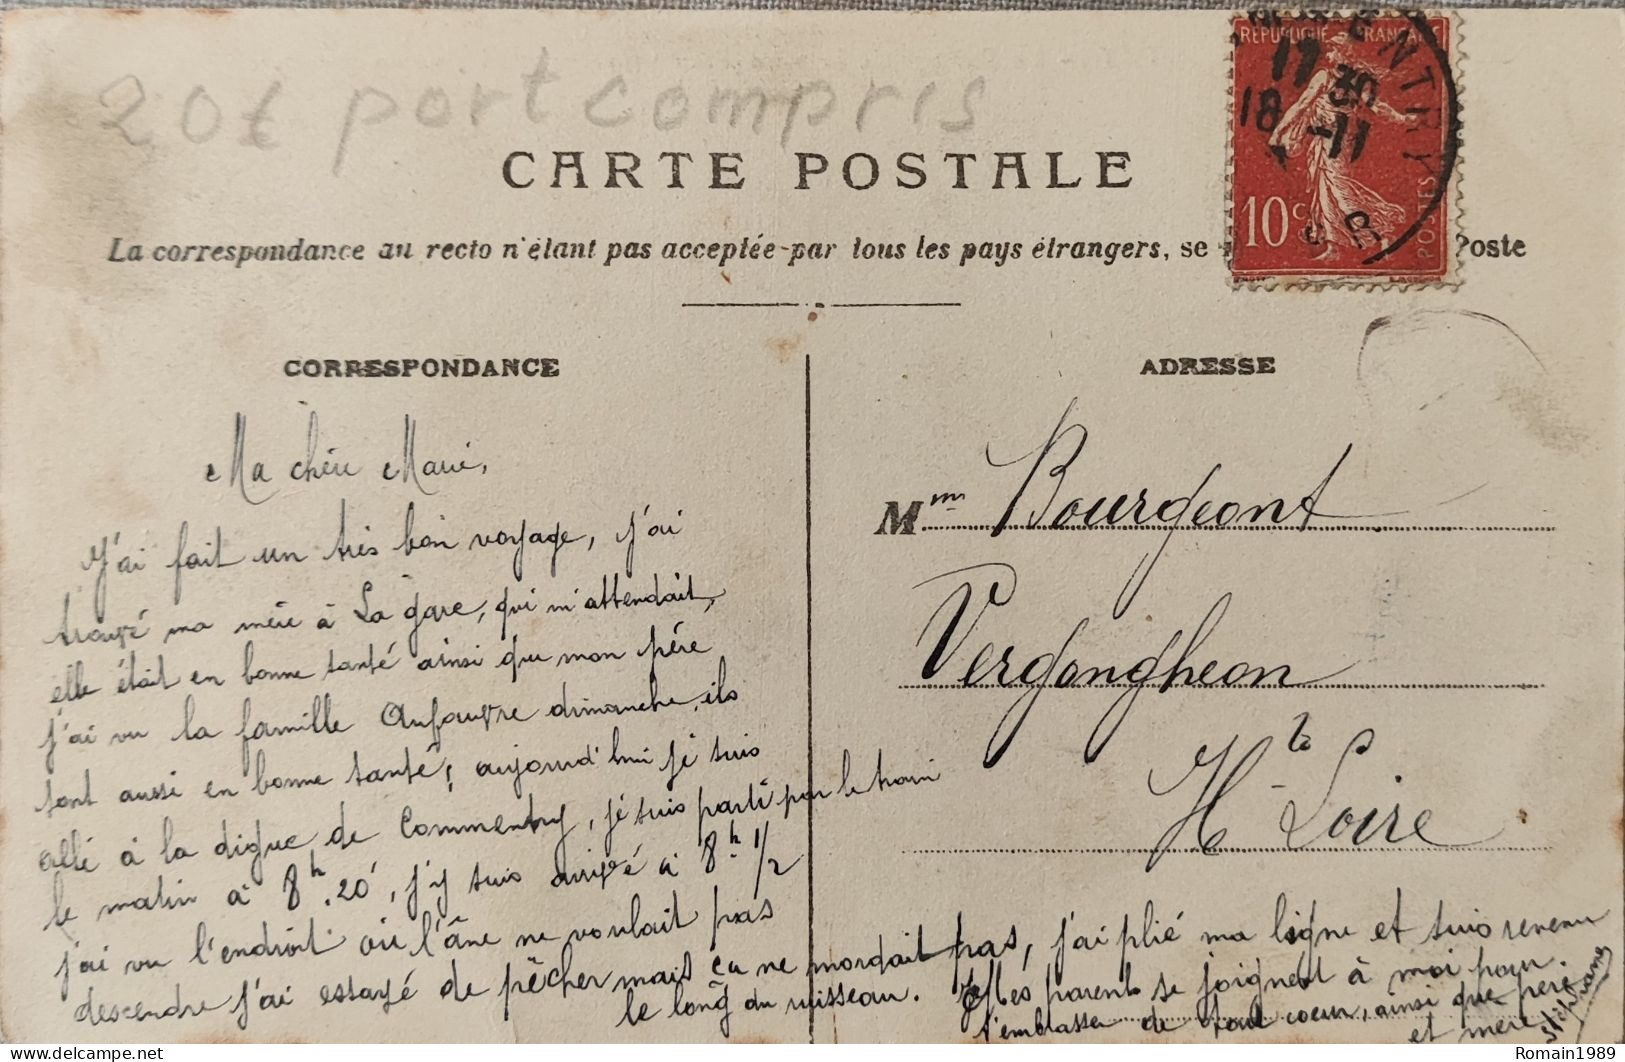 20€ port compris
CARTE POSTALE
La correspondance au recto n'étant pas acceptée par tous les pays étrangers, se Poste
RÉPUBLIQUE FRANÇAISE
ENTRY
17 30
18 -11
10c
POSTES
CORRESPONDANCE
ADRESSE
Ma chère Marie,
J'ai fait un très bon voyage, j'ai
trouvé ma mère à La gare, qui m'attendait,
elle était en bonne santé ainsi que mon père
j'ai vu la famille Aufauvre dimanche, ils
sont aussi en bonne santé, aujourd'hui je suis
allé à la digue de Commentry, je suis parti par le train
le matin à 8h.20', j'y suis arrivé à 8h. 1/2
j'ai vu l'endroit où l'âne ne voulait pas
descendre j'ai essayé de pêcher mais ça ne mordait pas, j'ai plié ma ligne et suis revenu
le long du ruisseau. Mes parents se joignent à moi pour
t'embrasser de tout coeur, ainsi que père
et mère
Mme Bourgeont
Vergongheon
Hte Loire
Romain1989